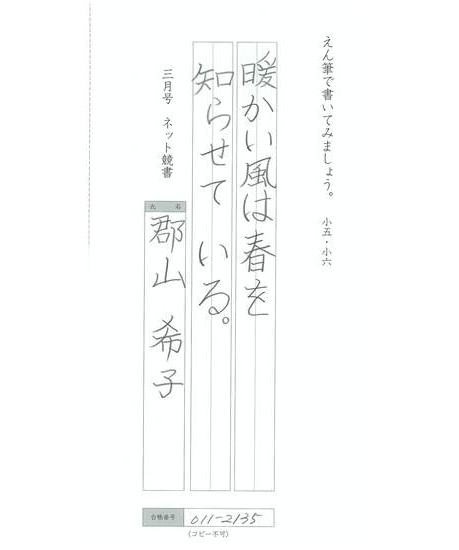 えん筆で書いてみましょう。 小五・小六
暖かい風は春を
知らせている。
三月号 ネット競書
氏名
郡山 希子
合格番号 011-2135
(コピー不可)